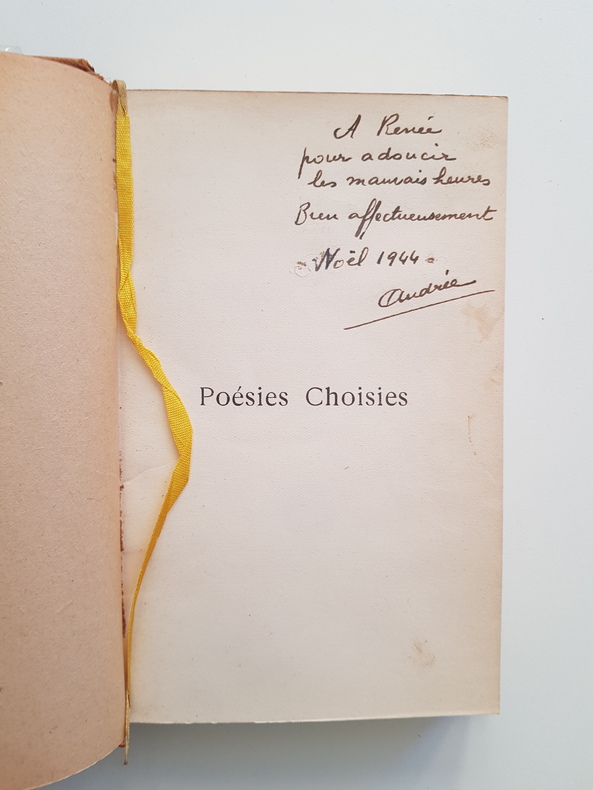 A Renée
pour adoucir
les mauvais heures
Bien affectueusement
- Noël 1944 -
Andrée
Poésies Choisies